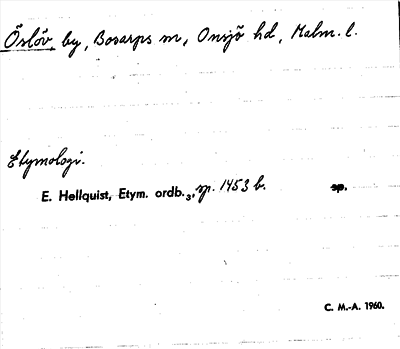 Öslöv by, Bosarps sn, Onsjö hd, Malm. l.
Etymologi.
E. Hellquist, Etym. ordb.₃, sp. 1453 b. sp.
C. M.-A. 1960.